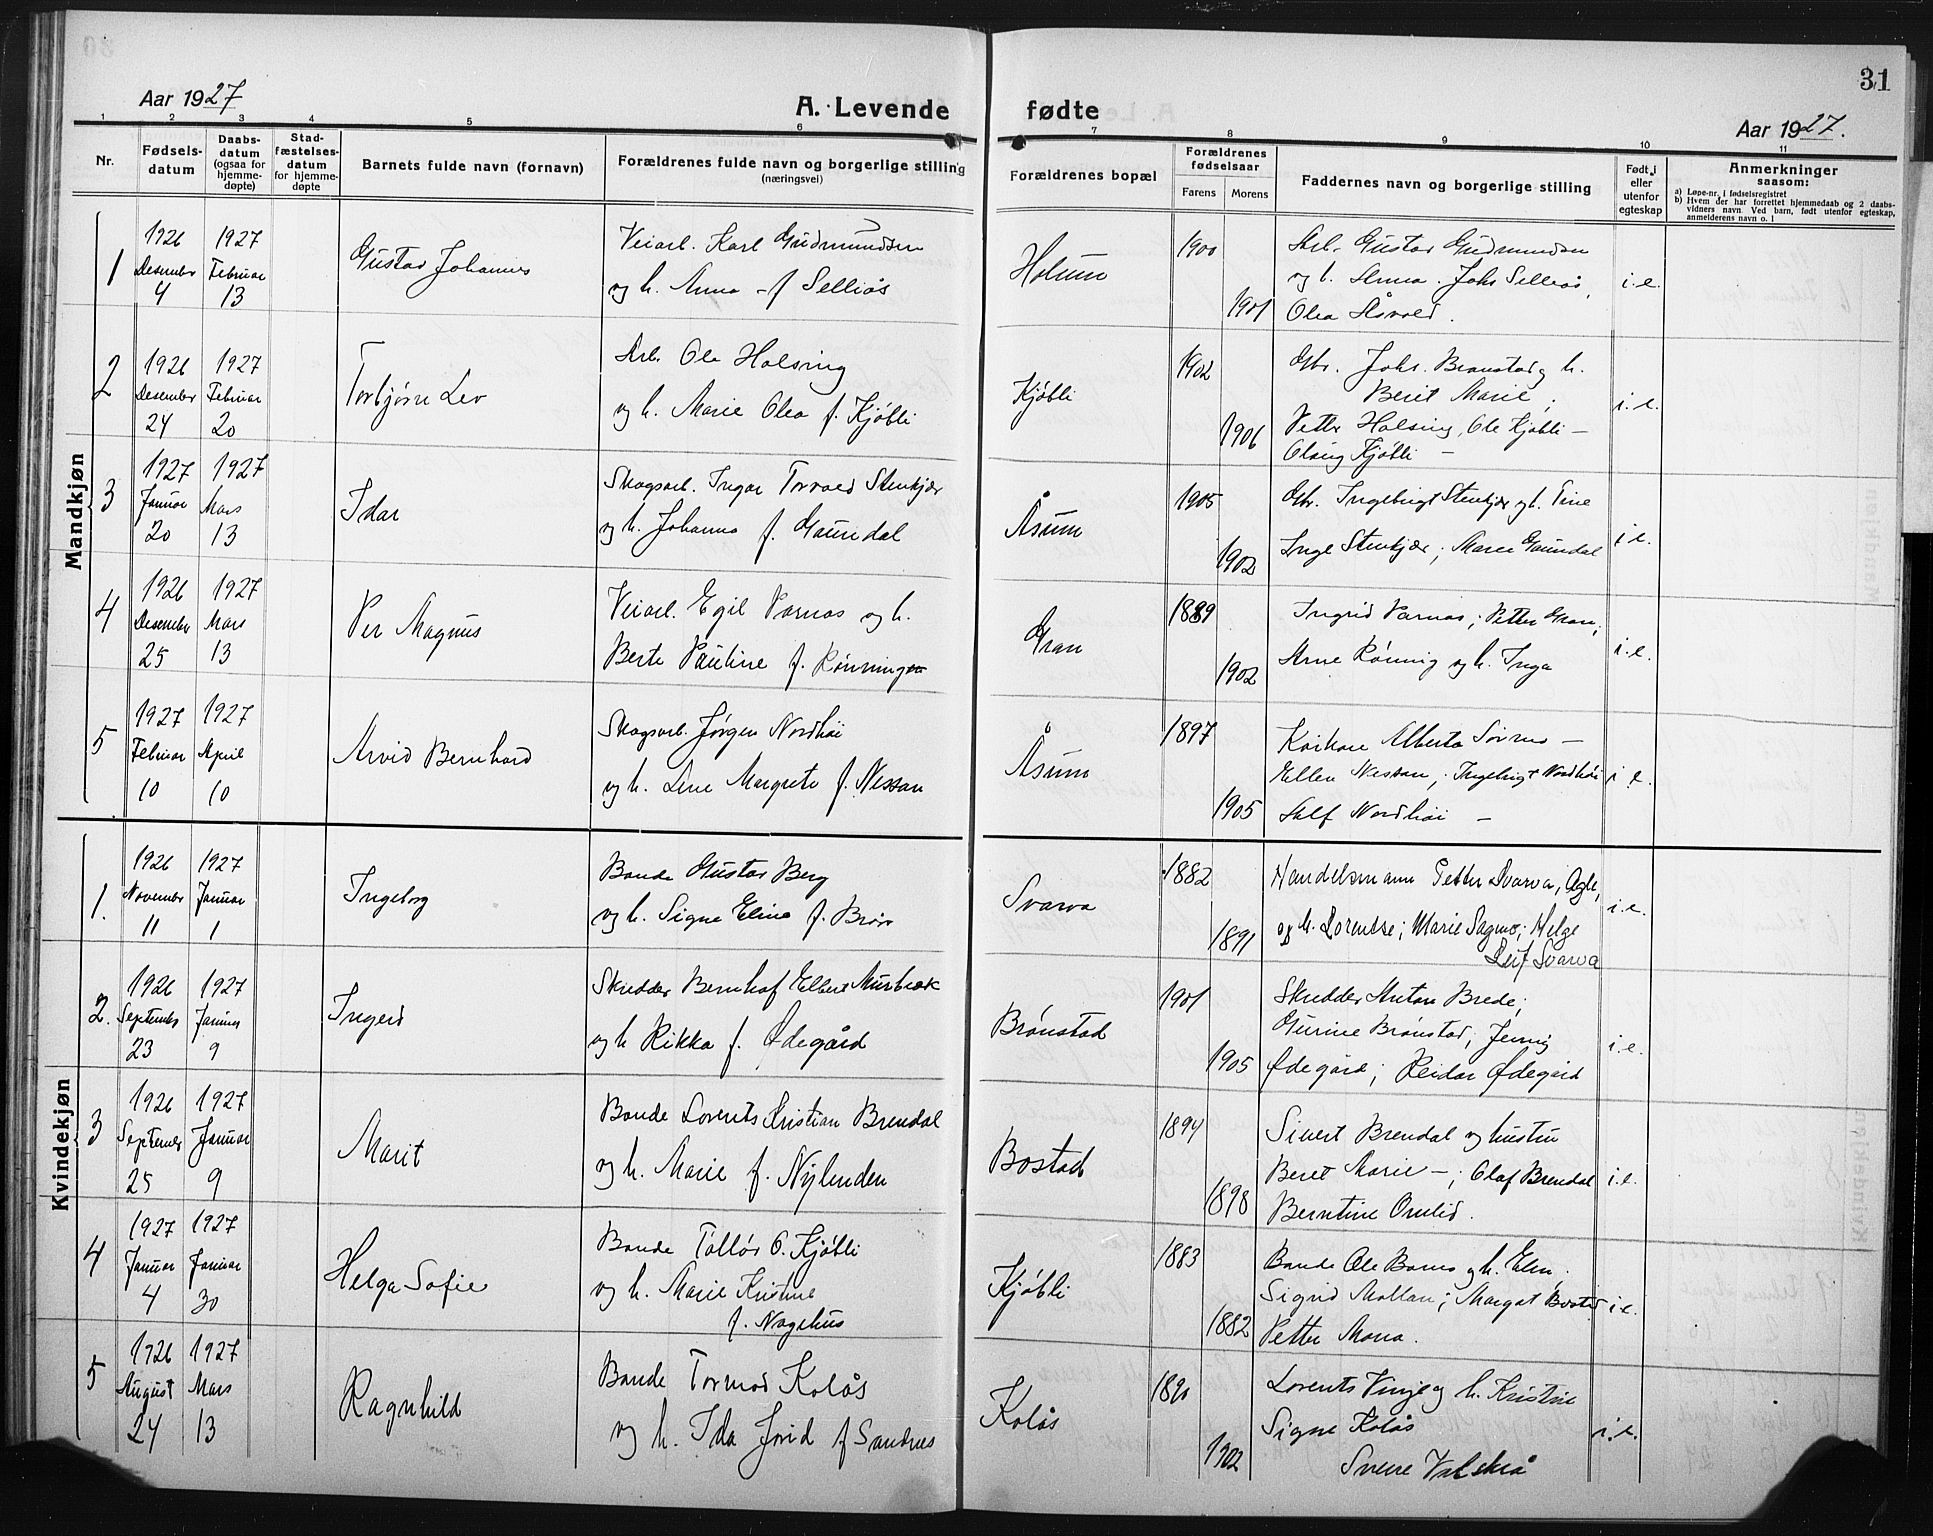 31
Aar 1927
A. Levende fødte
Aar 1927.
1 2 3 4 5 6 7 8 9 10 11
Nr.
Fødsels-
datum
Daabs-
datum
(ogsaa for
hjemme-
døpte)
Stad-
fæstelses-
datum
for hjemme-
døpte
Barnets fulde navn (fornavn)
Forældrenes fulde navn og borgerlige stilling
(næringsvei)
Forældrenes bopæl
Forældrenes
fødselsaar
Farens Morens
Faddernes navn og borgerlige stilling
Født i
eller
utenfor
egteskap
Anmerkninger
saasom:
a) Løpe-nr. i fødselsregistret
b) Hvem der har forrettet hjemmedaab og 2 daabs-
vidners navn. Ved barn, født utenfor egteskap,
anmelderens navn o. l
Mandkjøn
1
1926
Desember
4
1927
Februar
13
Gustav Johannes
Veiarb. Karl Gudmundsen
og h. Anna f Selliås
Holum
1900
1901
Arb. Gustav Gudmundsen
og h. Anna. Johs Selliås,
Olea
i.e.
2
1926
Desember
24
1927
Februar
20
Torbjørn Lev
Arb. Ole Holsing
og h. Marie Olea f. Kjøbli
Kjøbli
1902
1906
Gbr. Johs. Brønstad og h.
Berit Marie,
Petter Holsing, Ole Kjøbli –
Olaug Kjøbli –
i.e.
3
1927
Januar
20
1927
Mars
13
Idar
Skogsarb. Ingar Torvald Stenkjær
og h. Johanna f. Gaundal
Åsum
1905
1902
Gbr. Ingebrigt Stenkjær og h. Tine
Inge Stenkjær; Maren Gaundal
i e.
4
1926
Desember
25
1927
Mars
13
Per Magnus
Veiarb. Egil Parnas og h.
Berte Pauline f. Rønningen
Gran
1889
1902
Ingrid Parnas; Petter Gran;
Arne Rønnig og h. Inga
i.e.
5
1927
Februar
10
1927
April
10
Arvid Bernhard
Skogsarb. Jørgen Nordhöi
og h. Line Margrete f. Nessan
Åsum
1897
1905
Alberta Sørmo –
Ellen Nessan, Ingebrigt Nordhöi
Alf Nordhöi –
i e.
Kvindekjøn
1.
1926
November
11
1927
Januar
1
Ingeborg
Bonde Gustav Berg
og h. Signe Eline f.
Svarva
1882
1891
Handelsmann Petter Svarva, Agle,
og h. Lorentse; Marie Sagmo; Helge
Leif Svarva
i.e.
2.
1926
September
23
1927
Januar
9
Ingerd
Skredder Bernhof Elbert Murbræk
og h Rikka f. Ødegård
Brønstad
1901
1905
Skredder Anton Brede;
Gurine Brønstad; Jenny
Ødegård; Reidar Ødegård
i.e.
3
1926
September
25
1927
Januar
9
Marit
Bonde Lorents Kristian Brendal
og h. Marie f. Nylenden
Bostad
1894
1898
Sivert Brendal og hustru
Beret Marie –; Olaf Brendal
Berntine Omlid.
i.e.
4
1927
Januar
4
1927
Januar
30
Helga Sofie
Bonde Tollöv O. Kjøbli
og h. Marie Kristine
f. Nagehus
Kjøbli
1883
1882
Bonde Ole Bomo og h. Elen,
Sigrid Mollan; Margot Bostad
Petter Mona.
i e.
5
1926
August
24
1927
Mars
13
Ragnhild
Bonde Tormod Kolås
og h. Ida Jorid f Sandnes
Kolås
1890
1902
Lorents Vinje og h. Kristine
Signe Kolås
Sverre Valskrå
i.e.